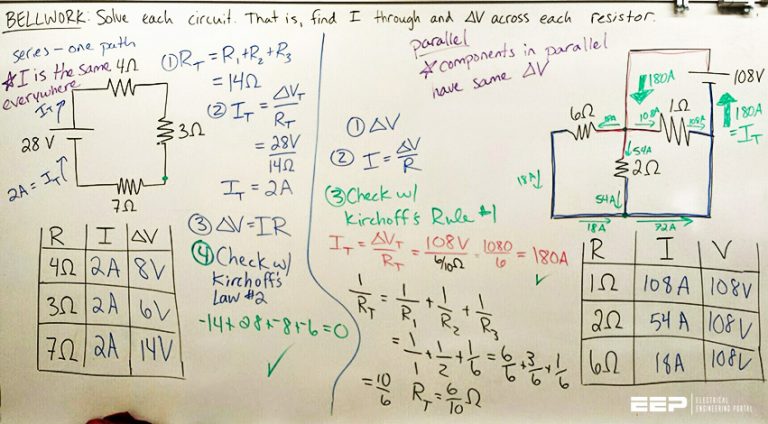 BELLWORK: Solve each circuit. That is, find I through and ΔV across each resistor.
series - one path
* I is the same
everywhere
4Ω
I_T
28 V
3Ω
2A = I_T
7Ω
R I ΔV
4Ω 2A 8V
3Ω 2A 6V
7Ω 2A 14V
① R_T = R₁ + R₂ + R₃
= 14Ω
② I_T = ΔV_T / R_T
= 28V / 14Ω
I_T = 2A
③ ΔV = IR
④ Check w/
Kirchoff's
Law #2
-14 + 28 + -8 + -6 = 0
✓
parallel
* components in parallel
have same ΔV
① ΔV
② I = ΔV / R
③ Check w/
Kirchoff's Rule #1
I_T = ΔV_T / R_T = 108V / 6/10Ω = 1080 / 6 = 180A
✓
1/R_T = 1/R₁ + 1/R₂ + 1/R₃
= 1/1 + 1/2 + 1/6 = 6/6 + 3/6 + 1/6
= 10/6 R_T = 6/10 Ω
180A
108V
6Ω
18A
108A
1Ω
108A
180A
= I_T
54A
2Ω
18A
54A
18A
72A
R I V
1Ω 108A 108V
2Ω 54A 108V
6Ω 18A 108V
EEP ELECTRICAL
ENGINEERING PORTAL